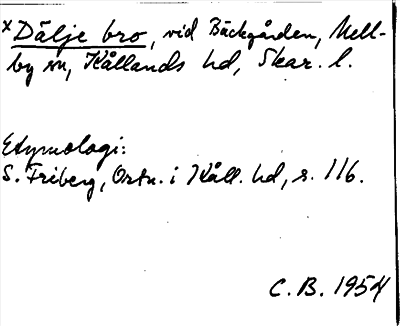 x Dälje bro, vid Bäckgården, Mell-
by sn, Kållands hd, Skar. l.
Etymologi:
S. Friberg, Ortn. i Kåll. hd, s. 116.
C. B. 1954